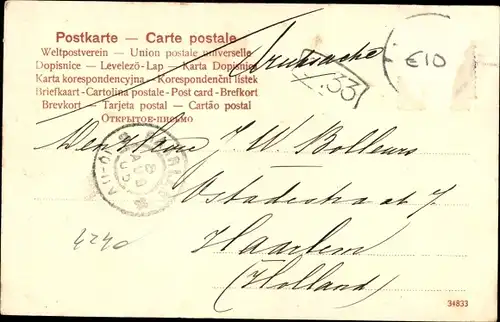 Postkarte — Carte postale
Weltpostverein — Union postale universelle
Dopisnice — Levelező-Lap — Karta Dopisnice
Karta korespondencyjna — Korespondenční listek
Briefkaart - Cartolina postale - Post card - Brefkort
Brevkort — Tarjeta postal — Cartão postal
Открытое-письмо
Drucksache
33
€10
8
AUG
Den Heere J. W. Bolleurs
Ostadestraat 7
Haarlem
(Holland)
4240
34833